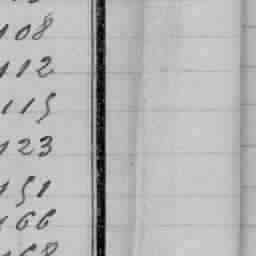 108
112
115
123
151
166
168